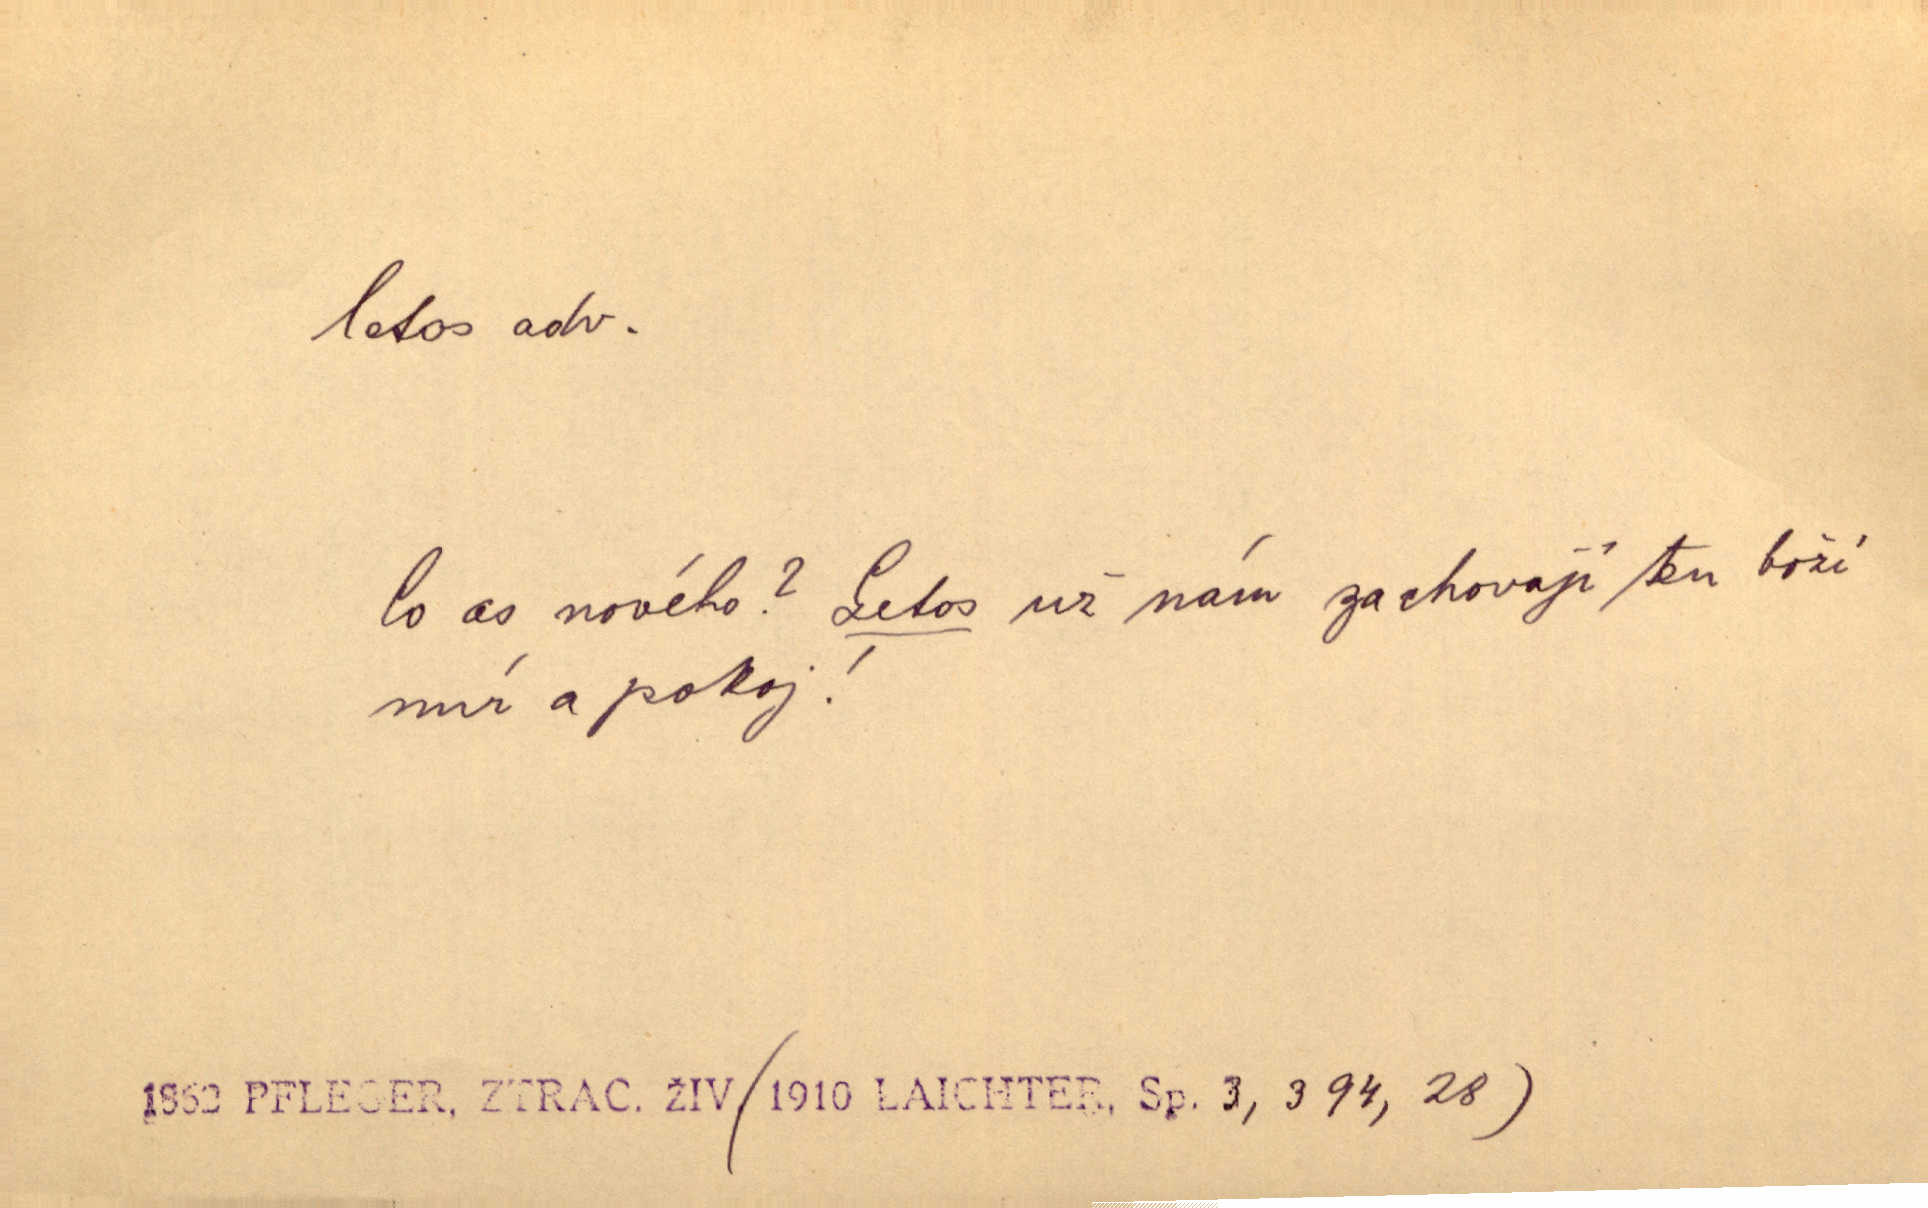 letos adv.
Co as nového? Letos už nám zachovají ten boží
mír a pokoj!
1862 PFLEGER, ZTRAC. ŽIV (1910 LAICHTER, Sp. 3, 394, 28)